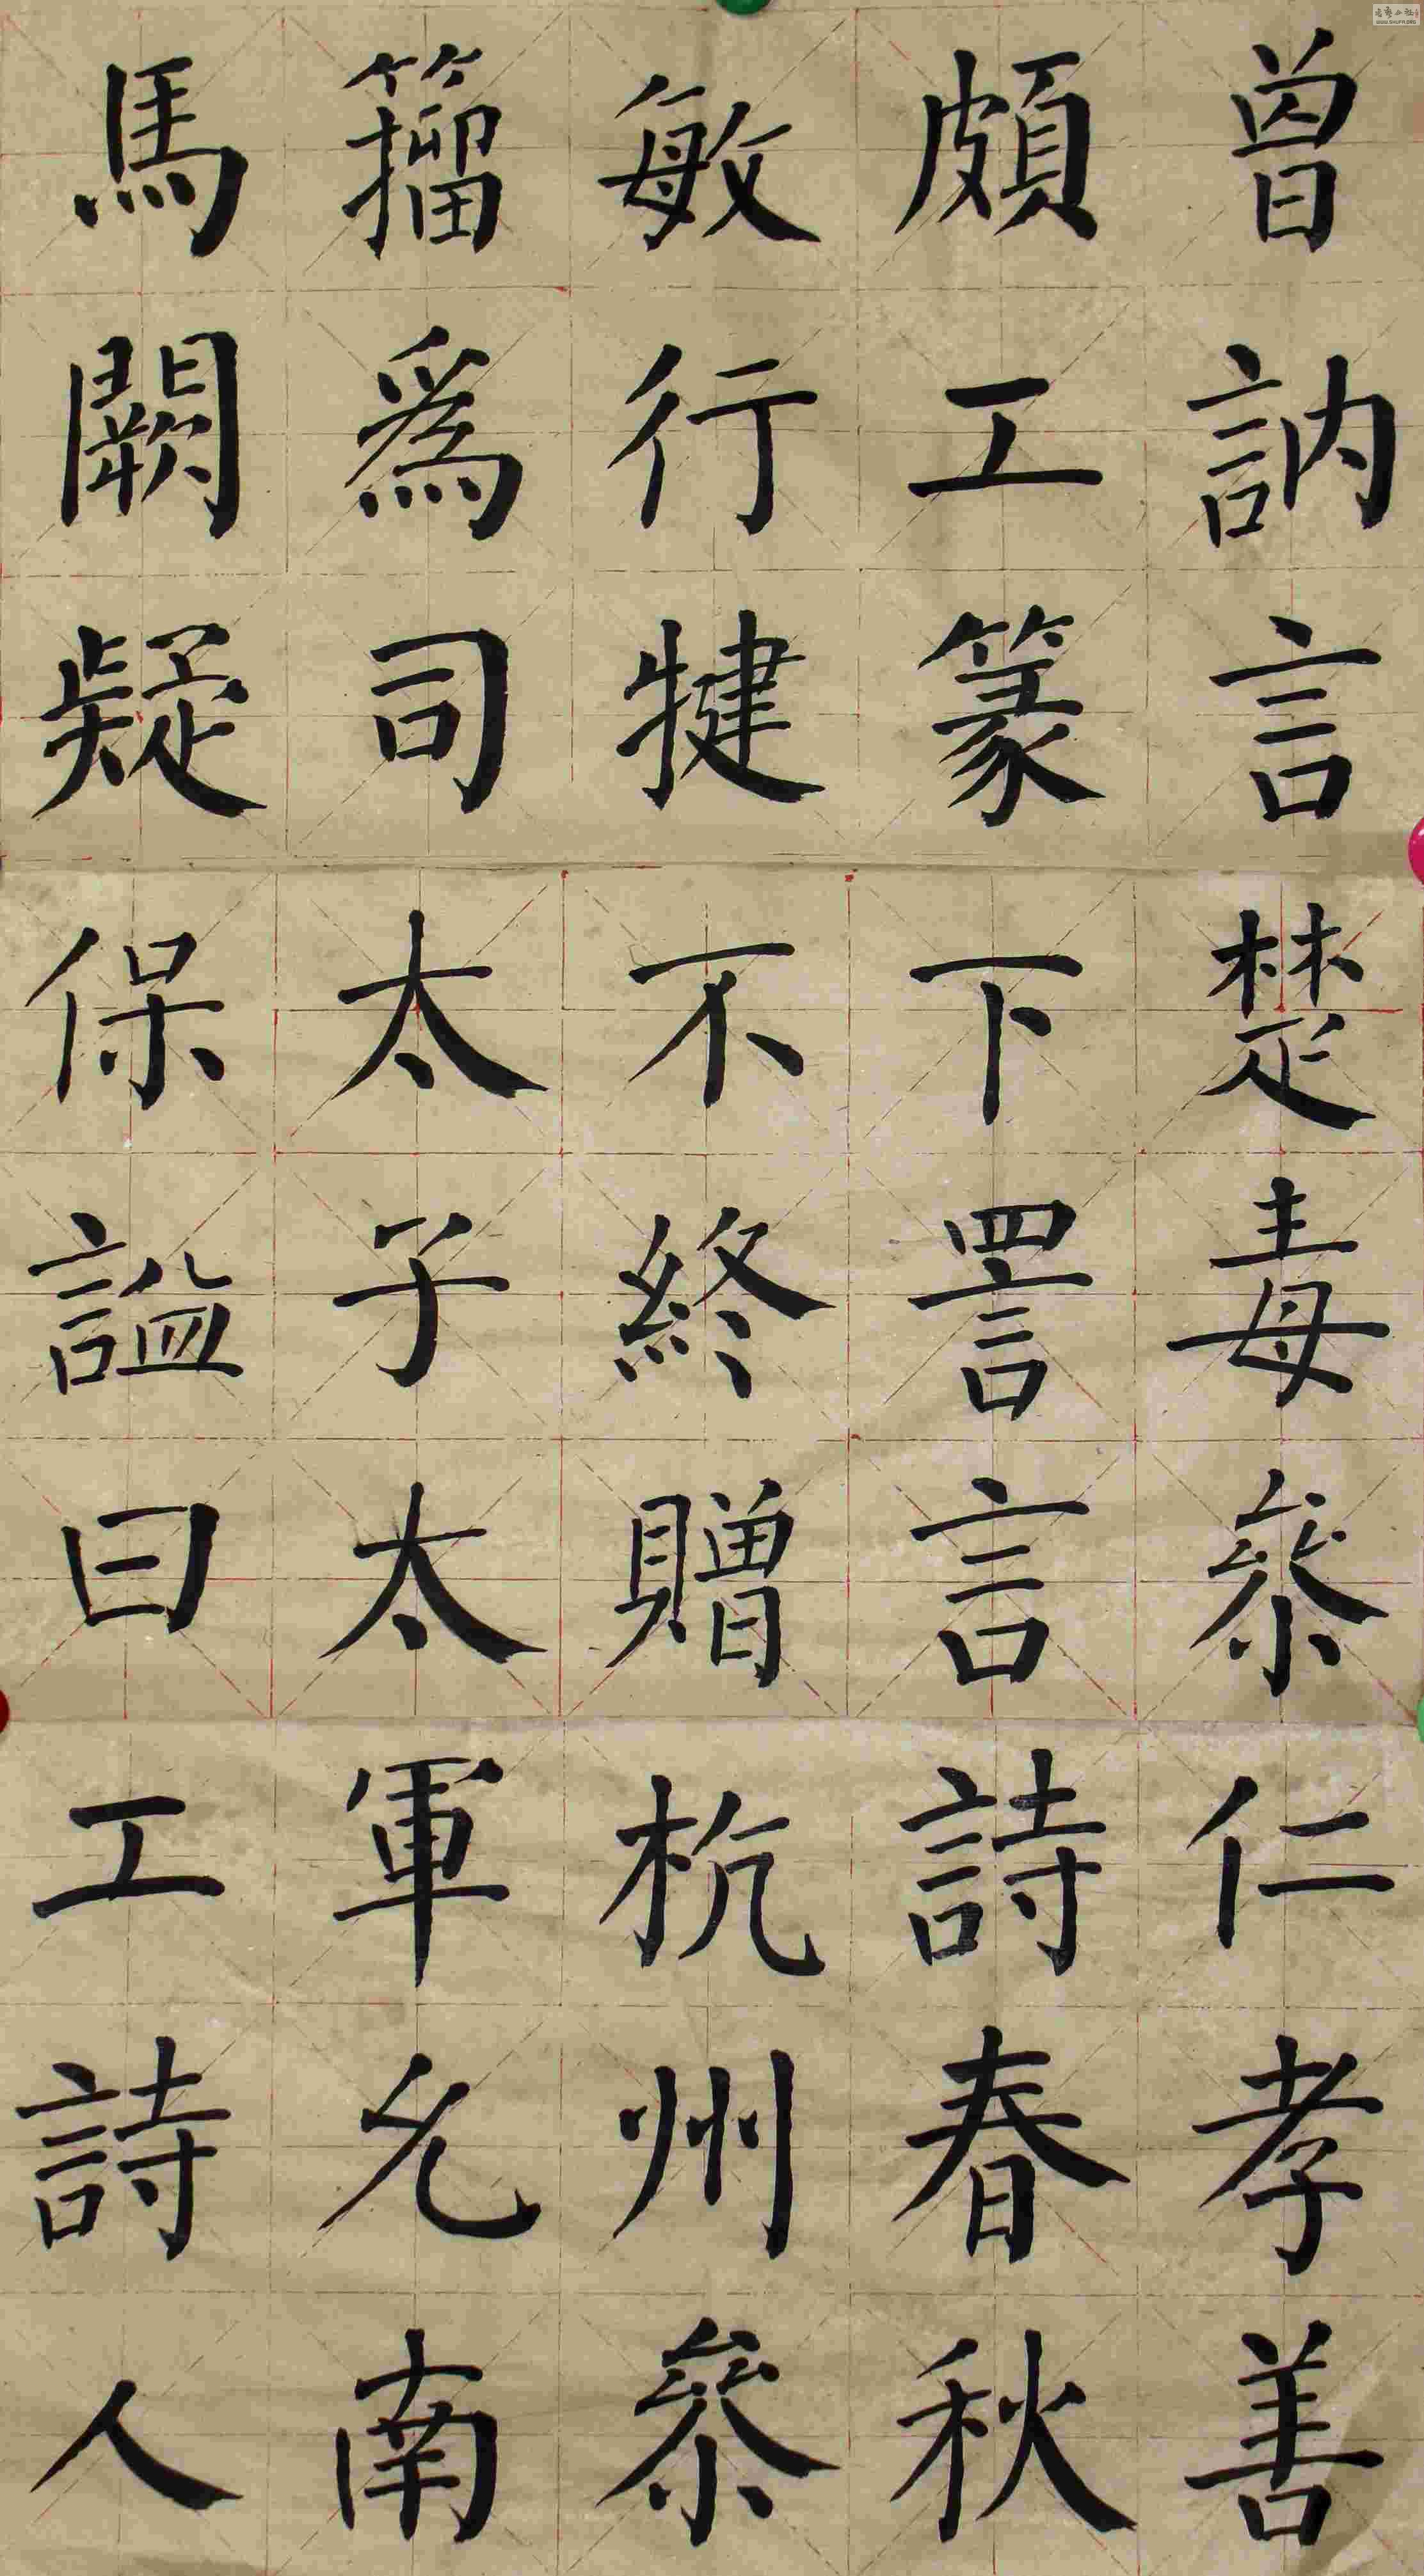 曾訥言楚毒參仁孝善
頗工篆下詈言詩春秋
敏行犍不終贈杭州參
籀爲司太子太軍允南
馬闕疑保諡曰工詩人